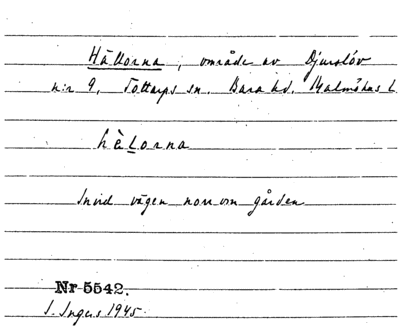 Hällorna, område av Djurslöv
n:r 9, Tottarps sn. Bara hd. Malmöhus l.
hèlorna
Invid vägen norr om gården
Nr 5542.
I. Ingers 1945.